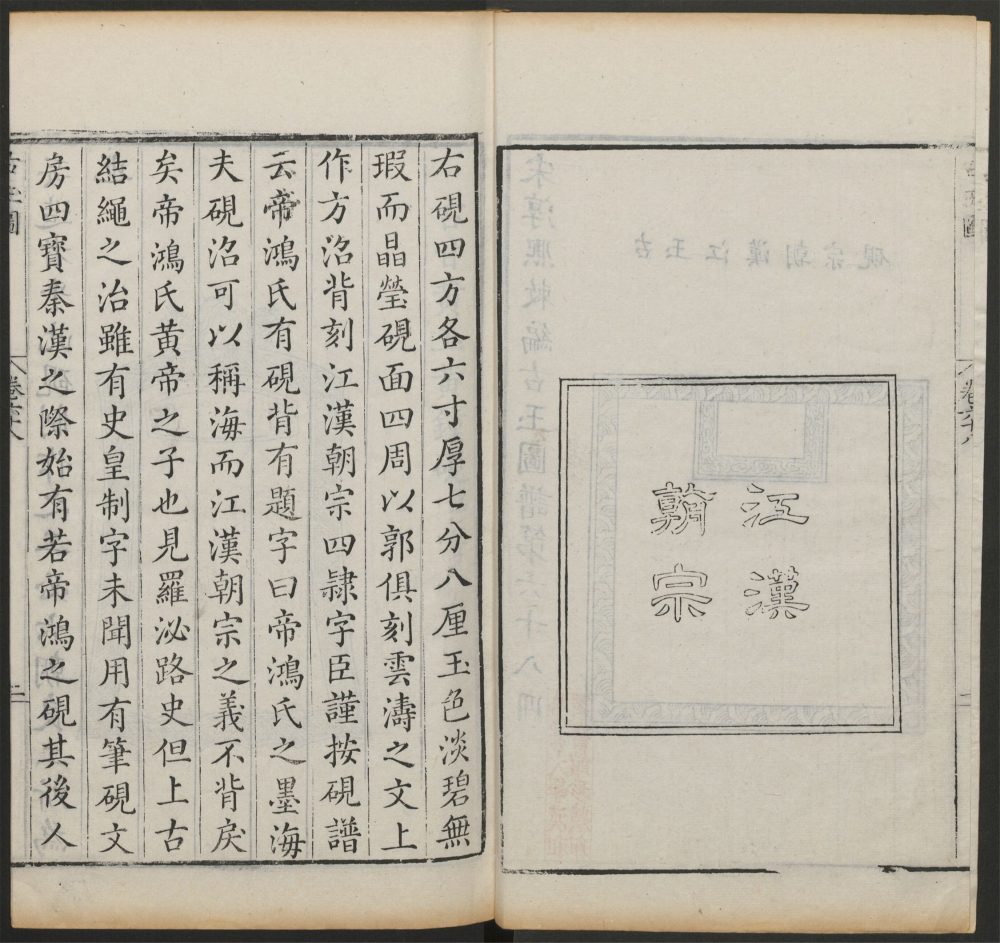 江漢
朝宗
卷六十八
右硯四方各六寸厚七分八厘玉色淡碧無
瑕而晶瑩硯面四周以郭俱刻雲濤之文上
作方沼背刻江漢朝宗四隷字臣謹按硯譜
云帝鴻氏有硯背有題字曰帝鴻氏之墨海
夫硯沼可以稱海而江漢朝宗之義不背戾
矣帝鴻氏黄帝之子也見羅泌路史但上古
結繩之治雖有史皇制字未聞用有筆硯文
房四寳秦漢之際始有若帝鴻之硯其後人